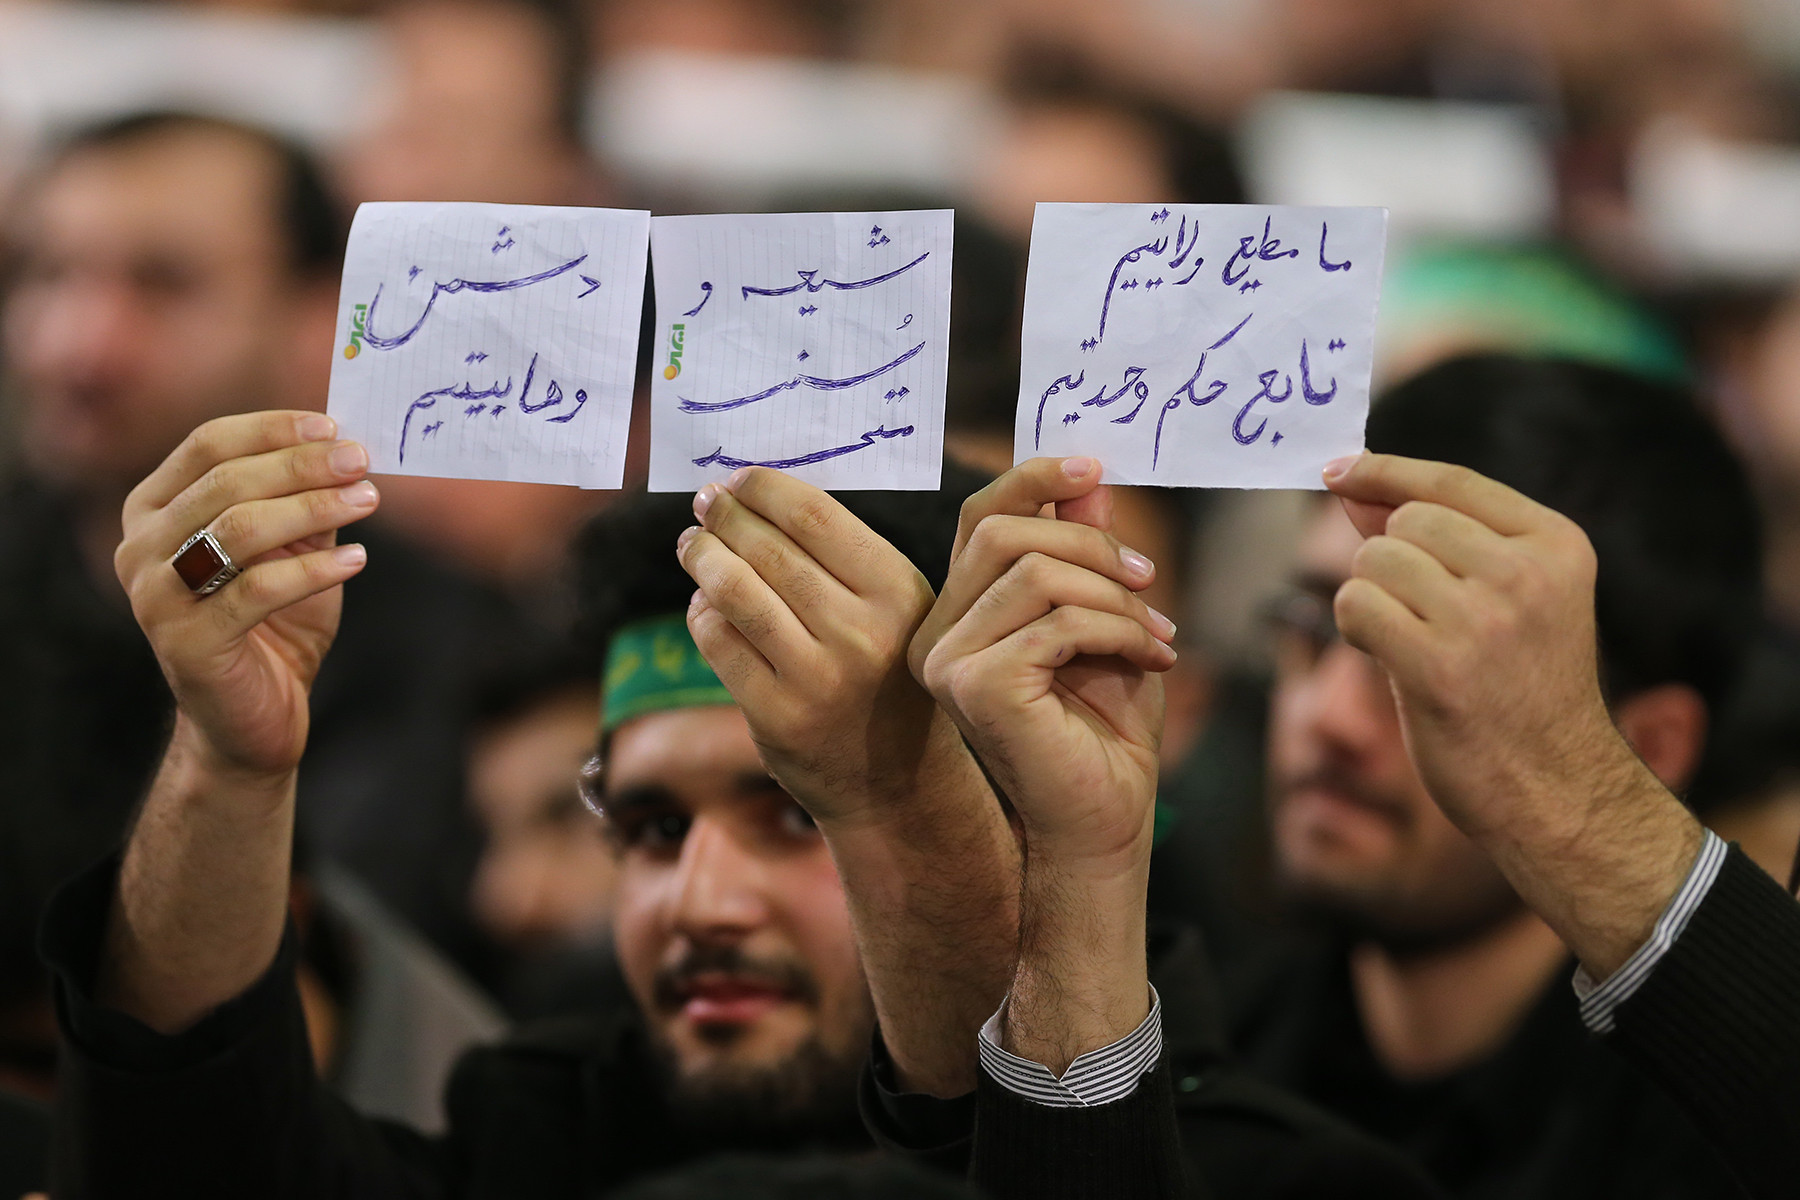 ما مطیع ولایتیم
تابع حکم وحدتیم
شیعه و
سُنی
متحد
دشمن
وهابیتیم